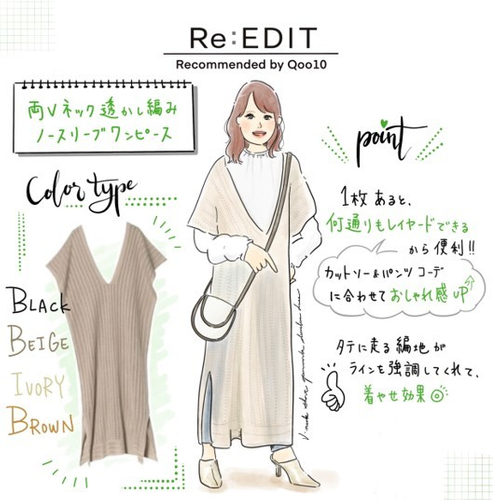 Re:EDIT
Recommended by Qoo10
両Vネック透かし編み
ノースリーブワンピース
Color type
BLACK
BEIGE
IVORY
BROWN
point
1枚あると、
何通りもレイヤードできる
から便利!!
カットソー&パンツコーデ
に合わせておしゃれ感UP
タテに走る編地が
ラインを強調してくれて、
着やせ効果◎